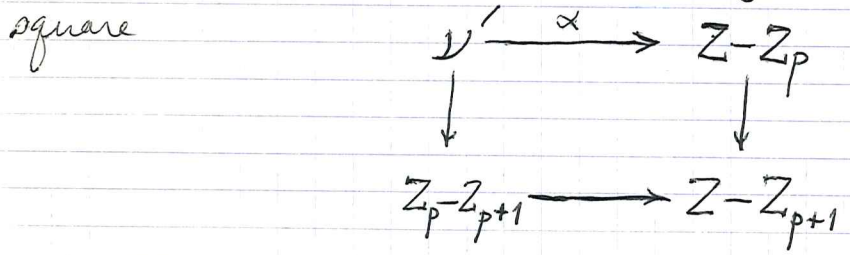 square
ν' α Z - Z_p
Z_p - Z_{p+1} Z - Z_{p+1}